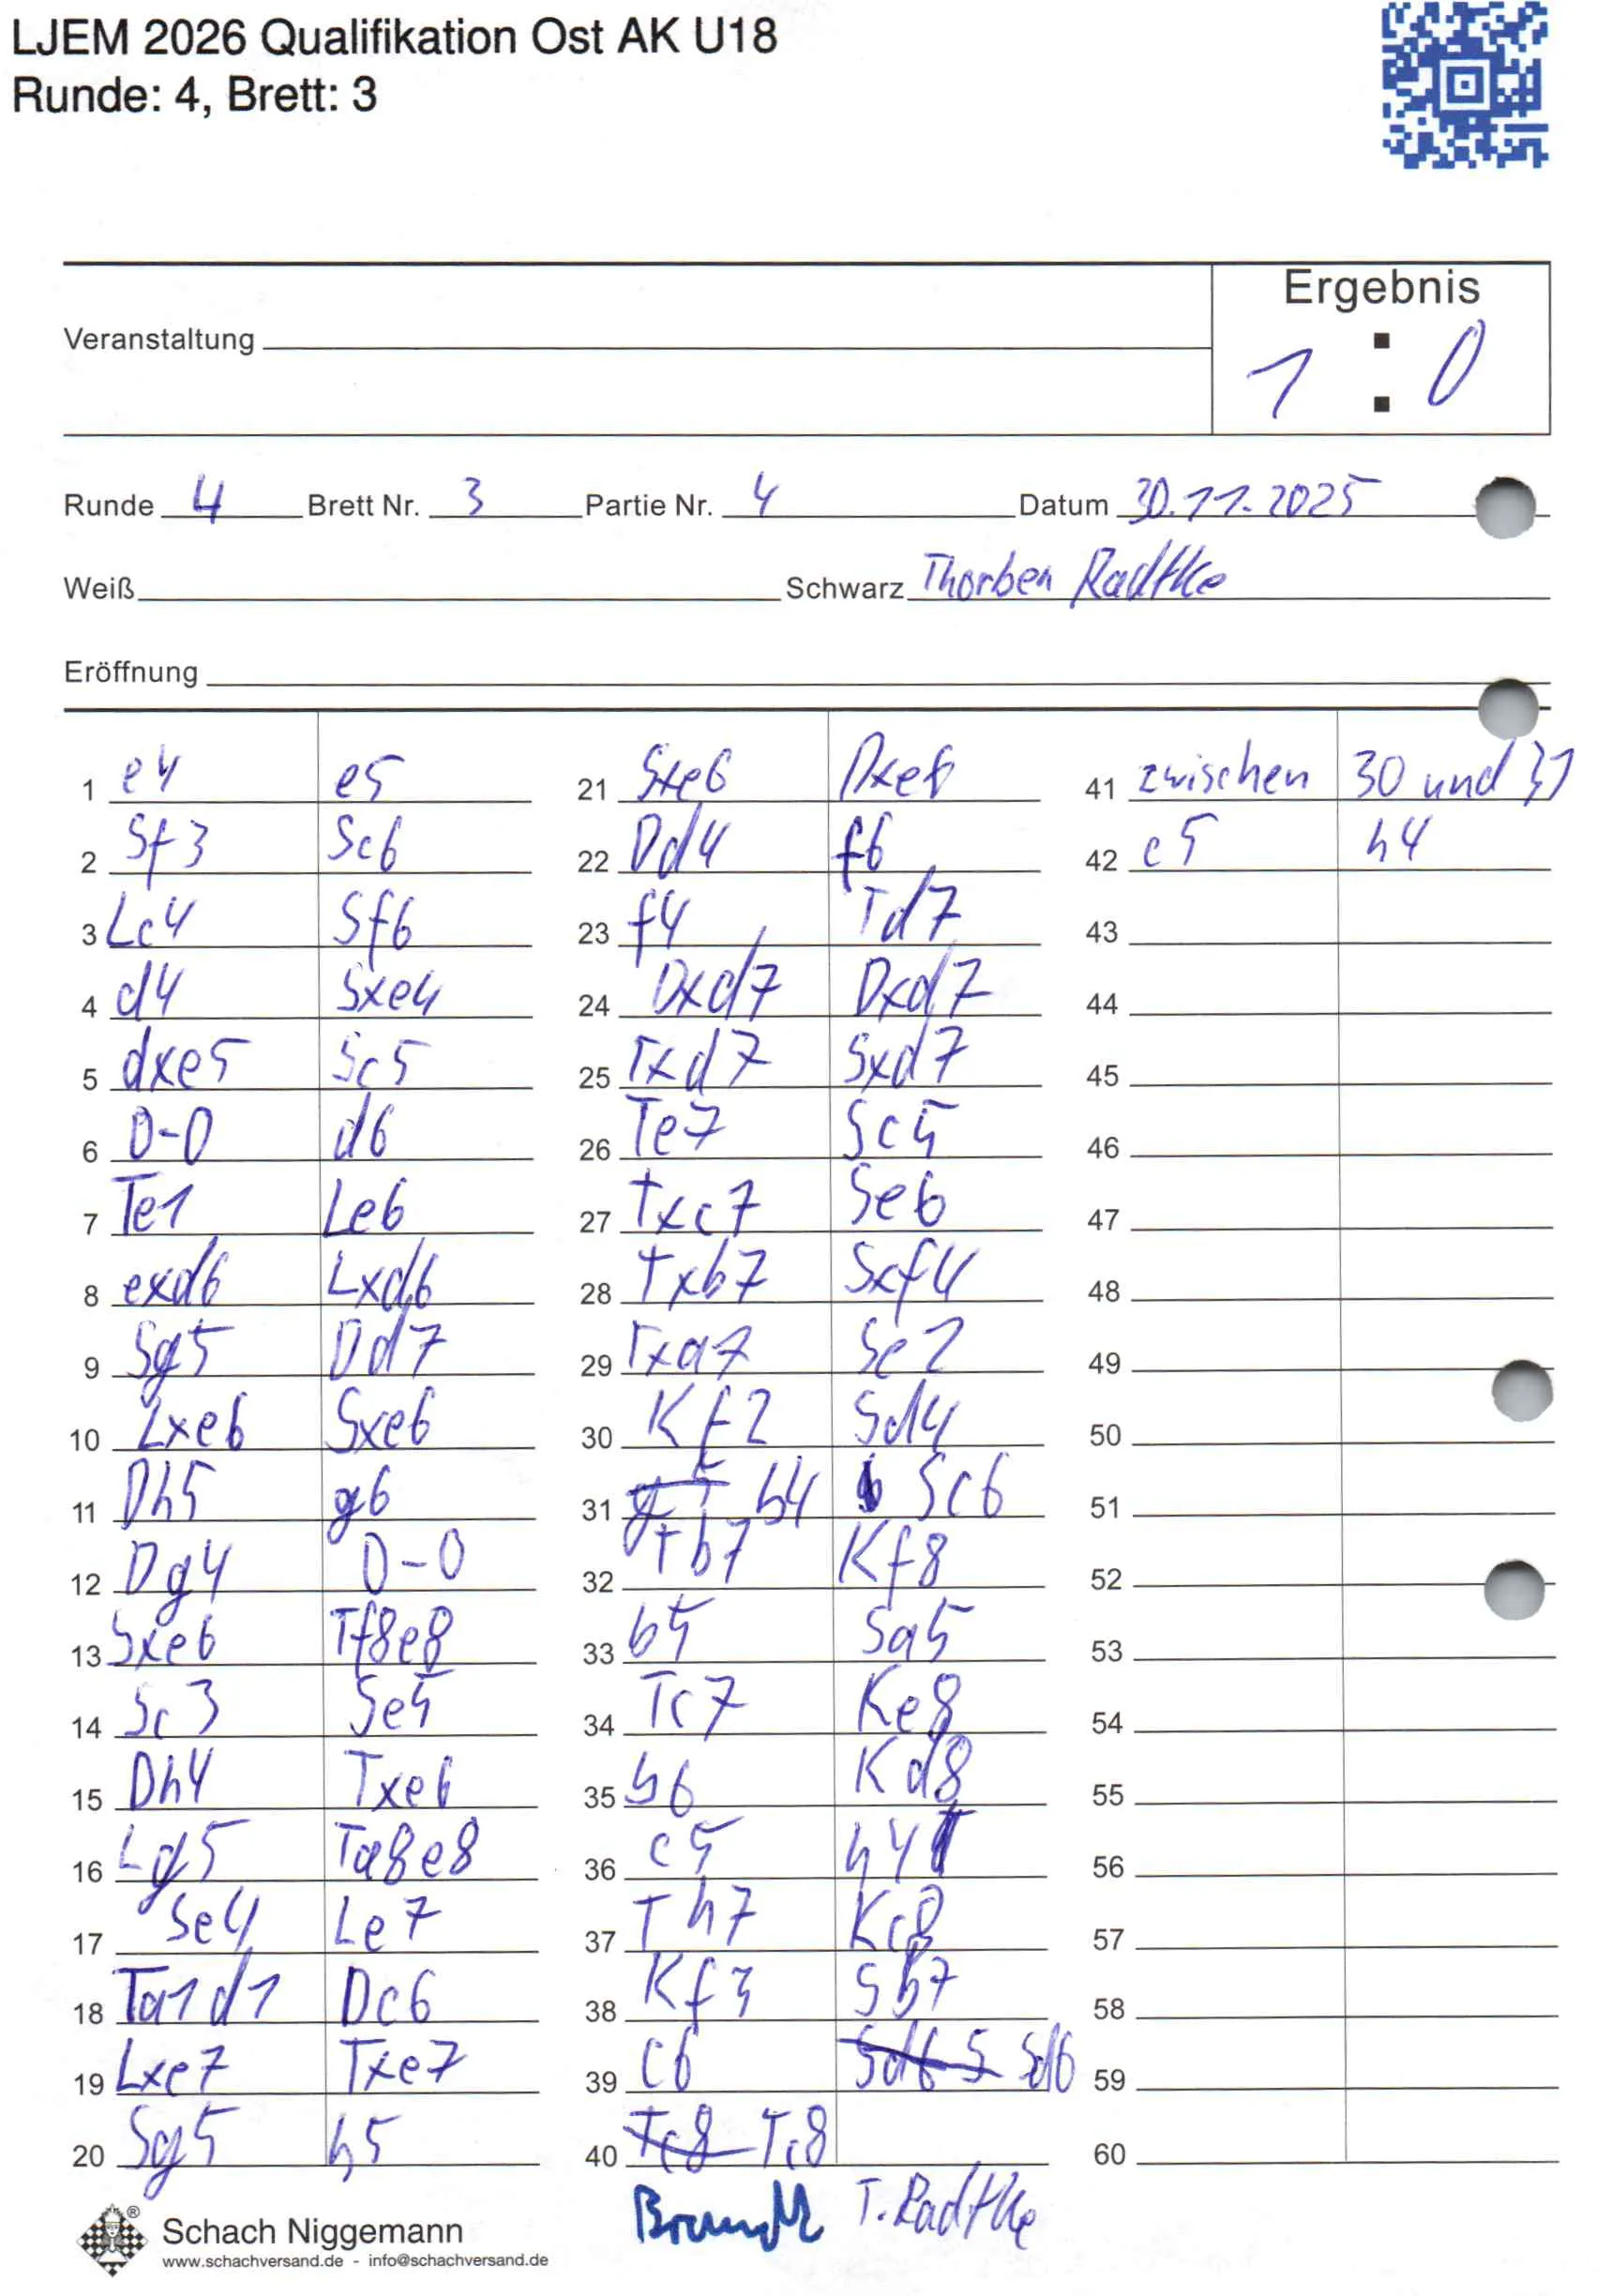 LJEM 2026 Qualifikation Ost AK U18
Runde: 4, Brett: 3
Ergebnis
Veranstaltung
1 : 0
Runde 4 Brett Nr. 3 Partie Nr. 4 Datum 30.11.2025
Weiß Schwarz Thorben Radtke
Eröffnung
1 e4 e5 21 Sxe6 Dxe6 41 zwischen 30 und 31
2 Sf3 Sc6 22 Dd4 f6 42 c5 h4
3 Lc4 Sf6 23 f4 Td7 43
4 d4 Sxe4 24 Dxd7 Dxd7 44
5 dxe5 Sc5 25 Txd7 Sxd7 45
6 0-0 d6 26 Te7 Sc5 46
7 Te1 Le6 27 Txc7 Se6 47
8 exd6 Lxd6 28 Txb7 Sxf4 48
9 Sg5 Dd7 29 Txa7 Se2 49
10 Lxe6 Sxe6 30 Kf2 Sd4 50
11 Dh5 g6 31 b4 Sc6 51
12 Dg4 0-0 32 Tb7 Kf8 52
13 Sxe6 Tf8e8 33 b5 Sa5 53
14 Sc3 Se5 34 Tc7 Ke8 54
15 Dh4 Txe6 35 b6 Kd8 55
16 Lg5 Ta8e8 36 c5 h4 56
17 Se4 Le7 37 Th7 Kc8 57
18 Ta1d1 Dc6 38 Kf3 Sb7 58
19 Lxe7 Txe7 39 c6 Sd6 Sd6 59
20 Sg5 h5 40 Tc8 Tc8 60
Brandt T. Radtke
® Schach Niggemann
www.schachversand.de - info@schachversand.de